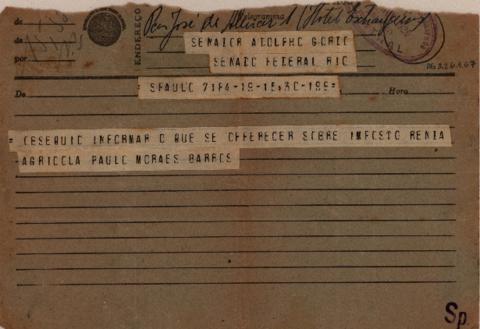 de
a
por
ENDEREÇO
José de Alencar (Hotel
SENADOR ADOLPHO GORDO
SENADO FEDERAL RIO
De
SPAULO 7184-19-15,30-199=
Hora
= OBSEQUIO INFORMAR O QUE SE OFFERECER SOBRE IMPOSTO RENDA
AGRICOLA PAULO MORAES BARROS
Sp.